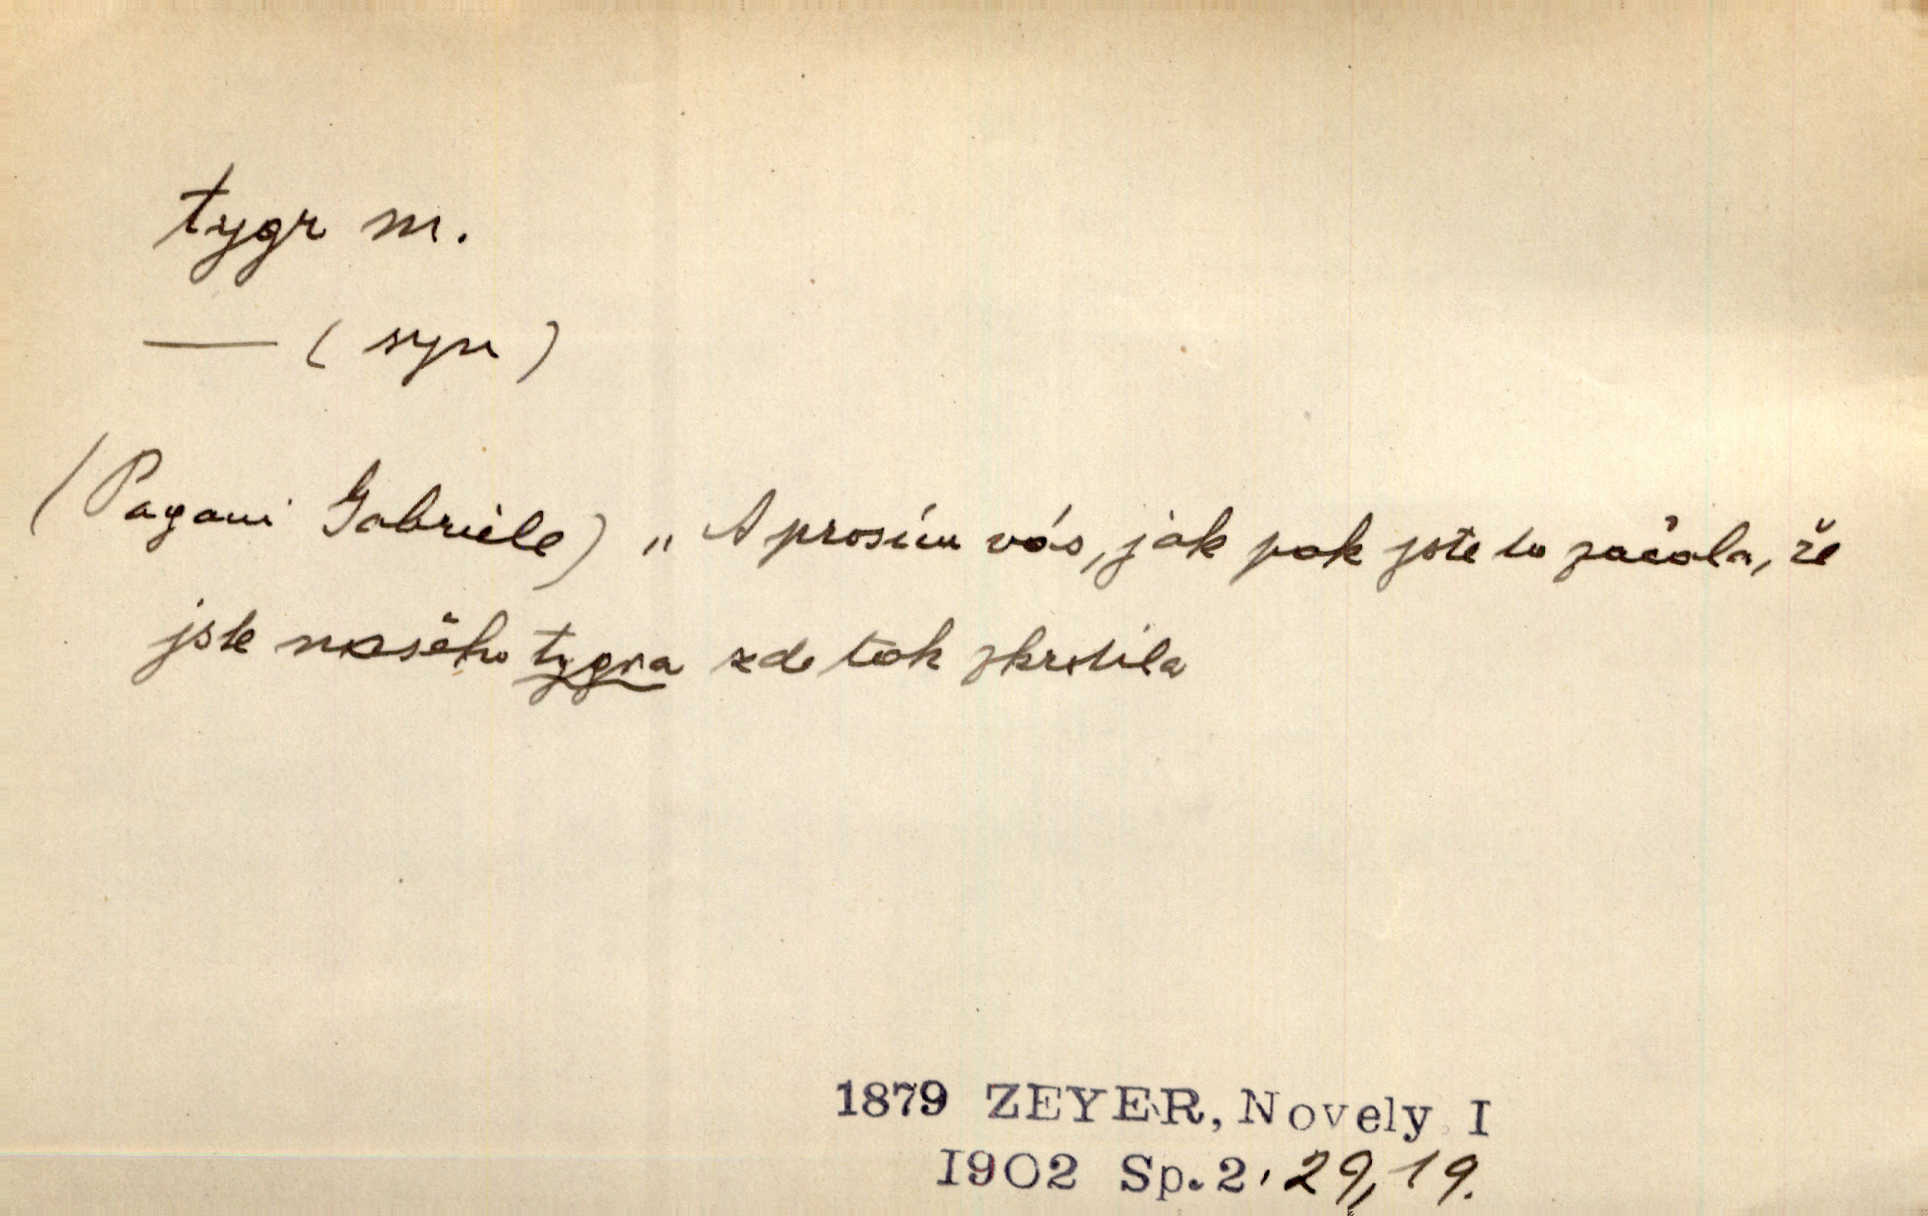 tygr m.
— (syn)
(Pagani Gabriele) „A prosím vás, jak pak jste to začala, že
jste našeho tygra zde tak zkrotila
1879 ZEYER, Novely I
1902 Sp. 2, 29, 19.